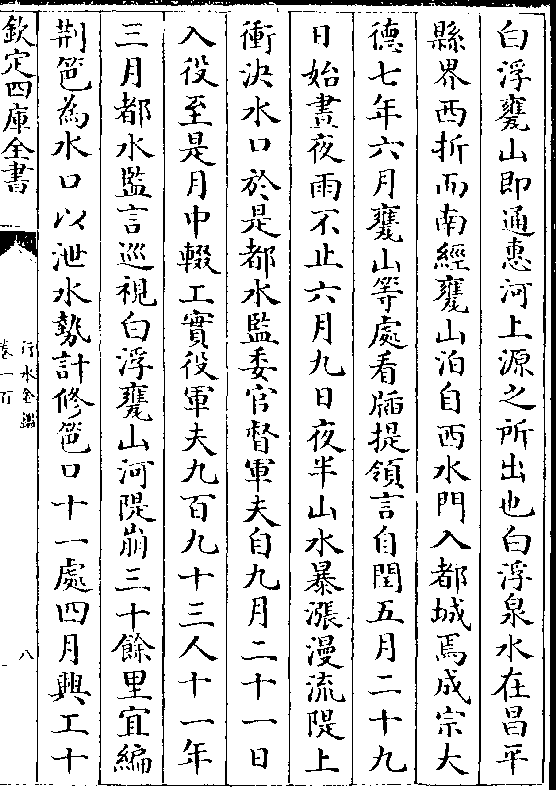 白浮甕山即通惠河上源之所出也白浮泉水在昌平
縣界西折而南經甕山泊自西水門入都城焉成宗大
德七年六月甕山等處看牐提領言自閏五月二十九
日始晝夜雨不止六月九日夜半山水暴漲漫流隄上
衝決水口於是都水監委官督軍夫自九月二十一日
入役至是月中輟工實役軍夫九百九十三人十一年
三月都水監言巡視白浮甕山河隄崩三十餘里宜編
荆笆為水口以泄水勢計修笆口十一處四月興工十
欽定四庫全書
行水金鑑
卷一百
八